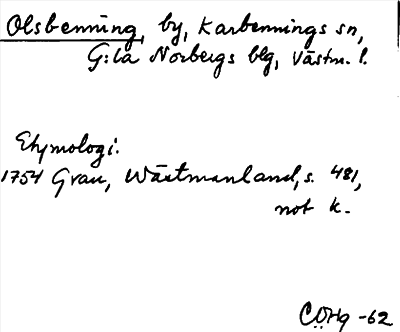 Olsbenning, by, Karbennings sn,
G:la Norbergs blg, Västm. l.
Etymologi.
1754 Grau, Wästmanland, s. 481,
not k.
COHg -62